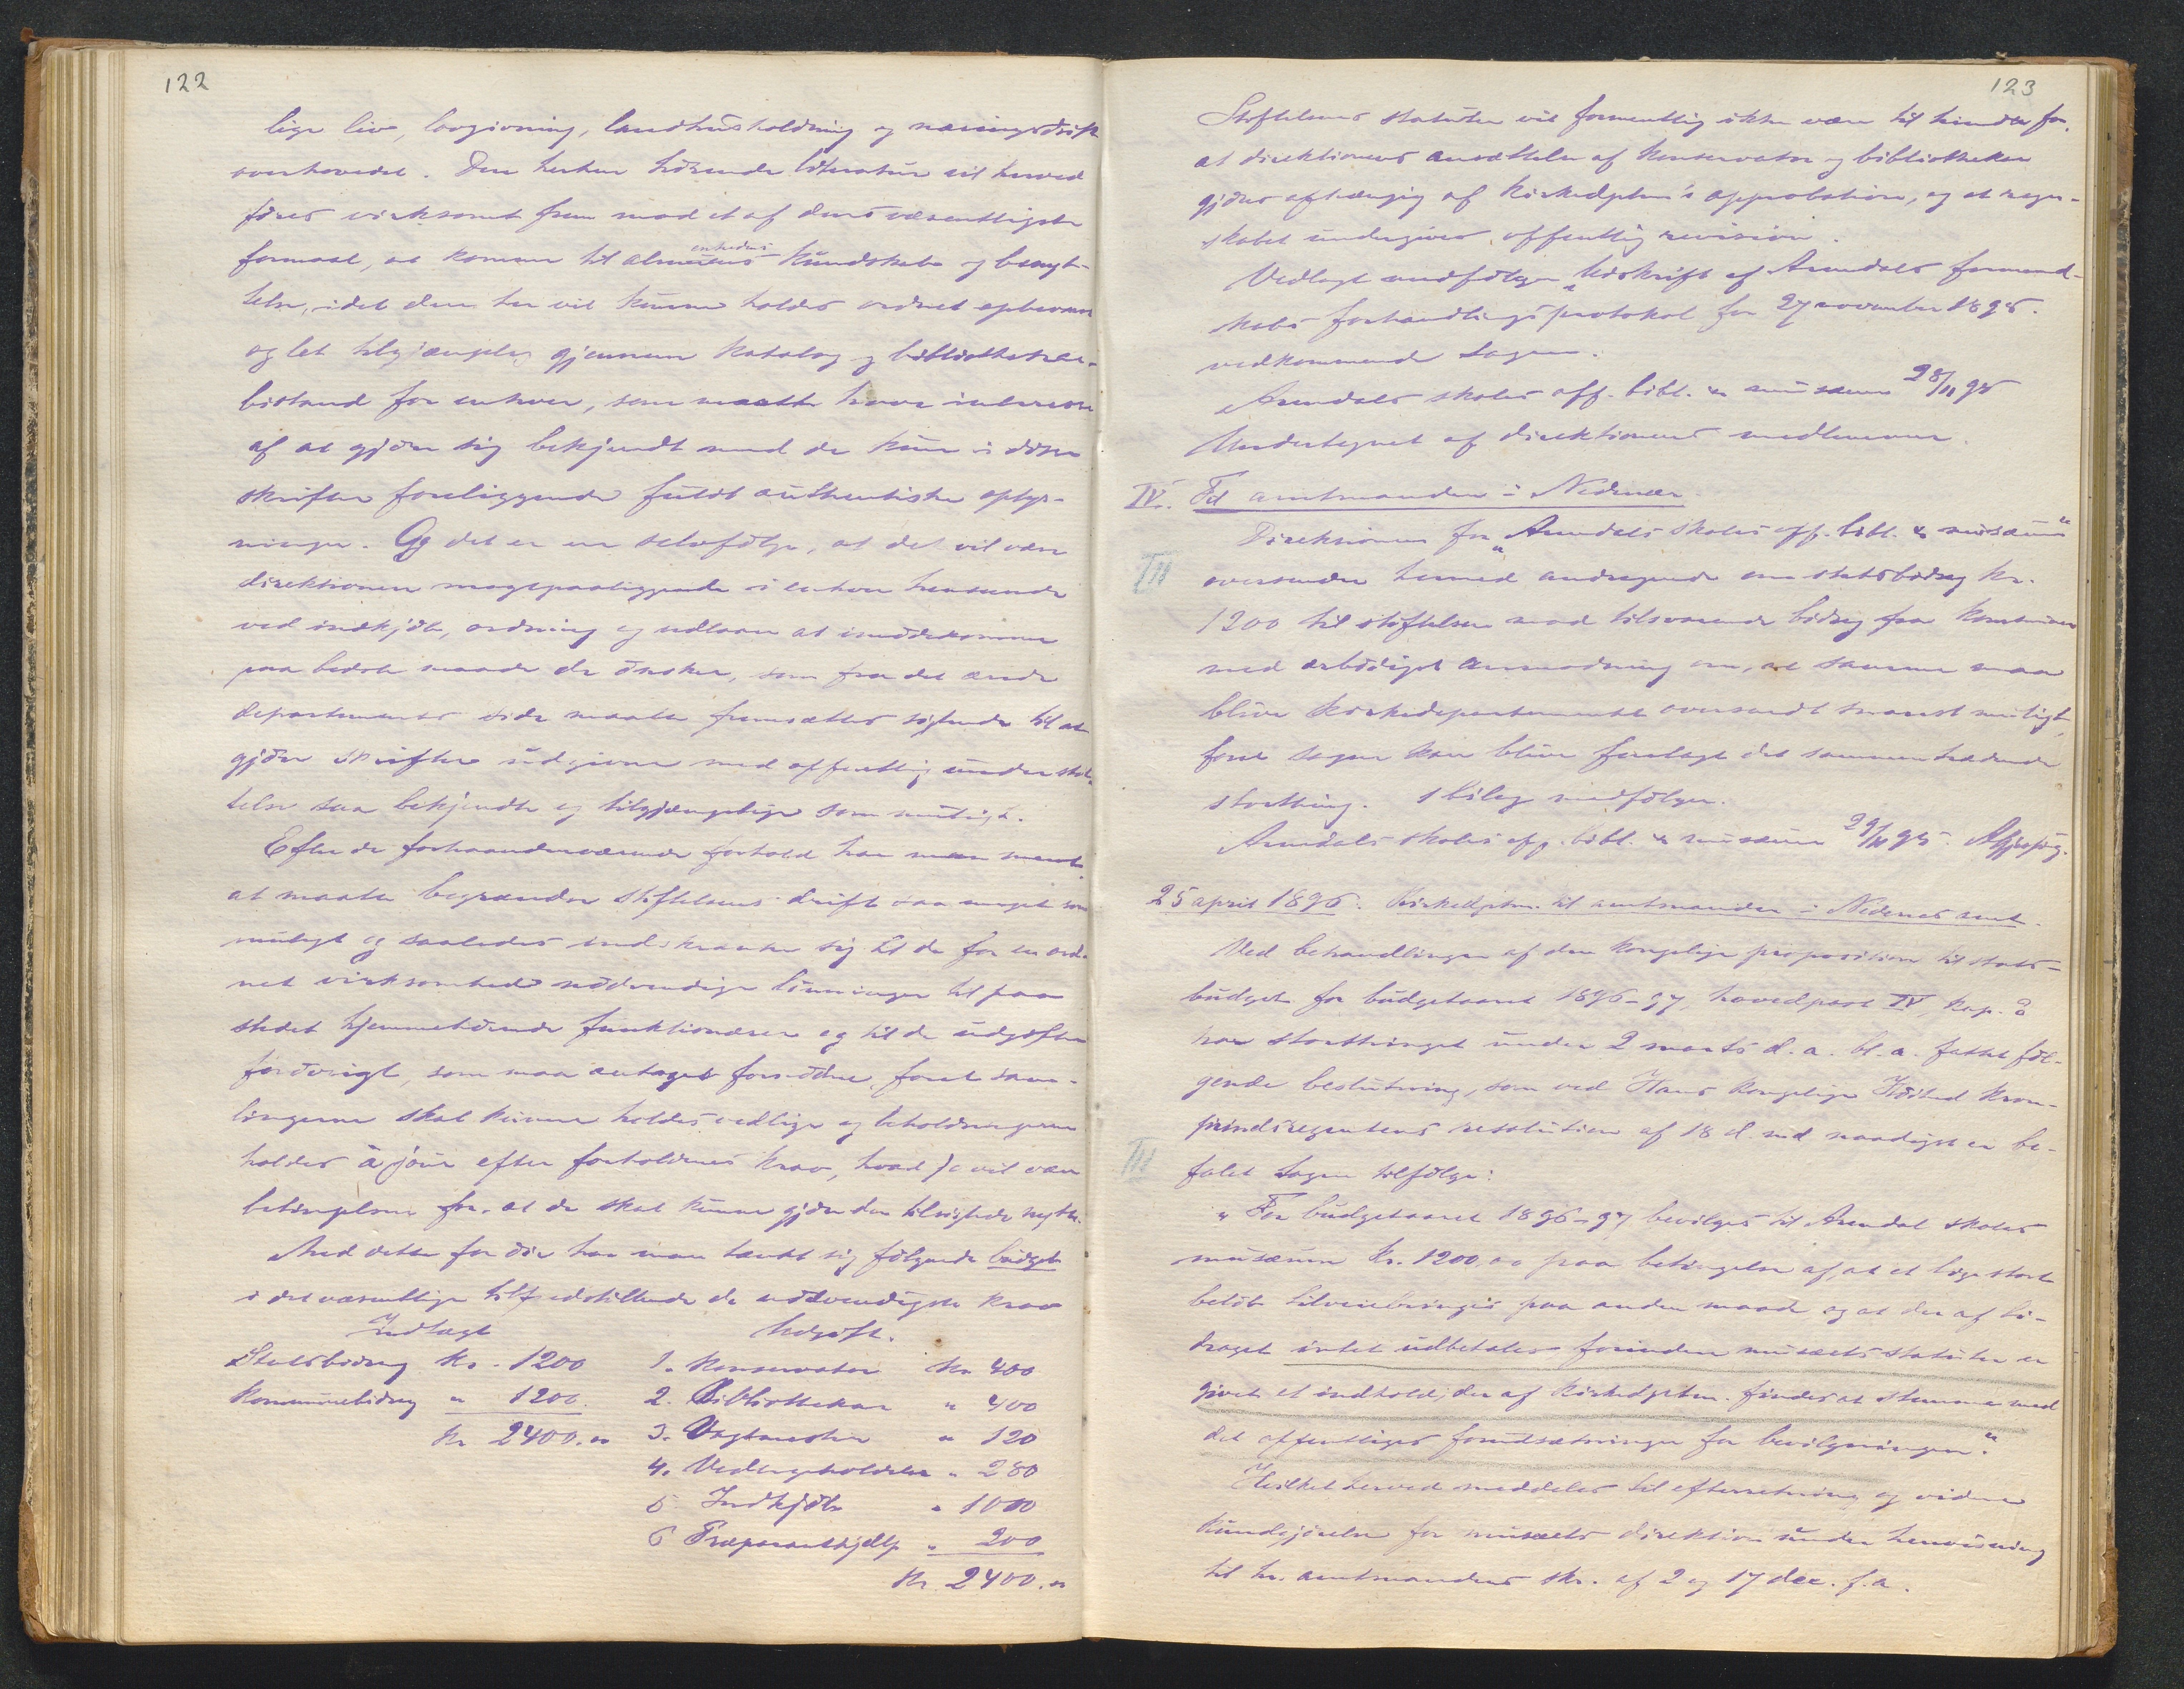 122
lige liv, lovgivning, landhusholdning og næringsdrift
overhovedet. Den herhen hörende literatur vil herved
föres virksomt frem mod et af dens væsentligste
formaal, at komme til almenhedens kundskab og benyt-
telse, idet den her vil kunne holdes ordnet opbevaret
og let tilgjængelig gjennem katalog og bibliothekar-
bistand for enhver, som maatte have interesse
af at gjöre sig bekjendt med de kun i disse
skrifter foreliggende fuldt authentiske oplys-
ninger. Og det er en selvfölge, at det vil være
direktionen magtpaaliggende i enhver henseende
ved indkjöb, ordning og udlaan at imödekomme
paa bedste maade de önsker, som fra det ærede
departements side maatte fremsættes sigtende til at
gjöre skrifter udgivne med offentlig understöt-
telse saa bekjendte og tilgjængelige som muligt.
Efter de forhaandenværende forhold har man ment
at maatte begrændse stiftelsens drift saa meget som
muligt og saaledes indskrænke sig til de for en ord-
net virksomhed nödvendige lönninger til paa
stedet hjemmehörende funktionærer og til de udgifter
forövrigt, som maa antages fornödne, forat sam-
lingerne skal kunne holdes vedlige og beholdningerne
holdes à jour efter forholdenes krav, hvad jo vil være
betingelsen for, at de skal kunne gjöre den tilsigtede nytte.
Med dette for öie har man tænkt sig fölgende budget
i det væsentlige tilfredstillende de nödvendigste krav
Indtægt Udgift.
Statsbidrag Kr. 1200 1. Konservator Kr 400
Kommunebidrag " 1200. 2. Bibliothekar " 400
Kr 2400.00 3. Vagtmester " 120
4. Vedligeholdelse " 280
5. Indkjöb " 1000
6 Præparanthjælp " 200
Kr. 2400.00
123
Stiftelsens statuter vil formentlig ikke være til hinder for,
at direktionens ansættelse af konservator og bibliothekar
gjöres afhængig af Kirkedptm's approbation, og at regn-
skabet undergives offentlig revision.
Vedlagt medfölger udskrift af Arendals formand-
skabs forhandlingsprotokol for 27 november 1895.
vedkommende sagen.
Arendals skoles off. bibl. & musæum 28/11 95
Undertegnet af direktionens medlemmer.
IV. Til amtmanden i Nedenæs.
Direktionen for "Arendals skoles off. bibl. & musæum"
oversender hermed andragende om statsbidrag Kr.
1200 til stiftelsen mod tilsvarende bidrag fra kommunen
med ærbödigst anmodning om, at samme maa
blive Kirkedepartementet oversendt snarest muligt,
forat sagen kan blive forelagt det sammentrædende
storthing. 1 bilag medfölger.
Arendals skoles off. bibl. & musæum 29/11 95.
25 april 1896. Kirkedptm. til amtmanden i Nedenes amt.
Ved behandlingen af den kongelige proposition til stats-
budget for budgetaaret 1896-97, hovedpost IV, kap. 2
har storthinget under 2 marts d. a. bl. a. fattet föl-
gende beslutning, som ved Hans kongelige Höihed Kron-
prindsregentens resolution af 18 d. md naadigst er be-
falet tagen tilfölge:
"For budgetaaret 1896-97 bevilges til Arendal skoles
musæum Kr. 1200.00 paa betingelse af, at et lige stort
belöb tilveiebringes paa anden maade og at der af bi-
draget intet udbetales forinden musæets statuter er
givet et indhold, der af Kirkedptm. findes at stemme med
det offentliges forudsætninger for bevilgningen."
Hvilket herved meddeles til efterretning og videre
kundgjörelse for musæets direktion under henvisning
til hr. amtmandens skr. af 2 og 17 dec. f. a.